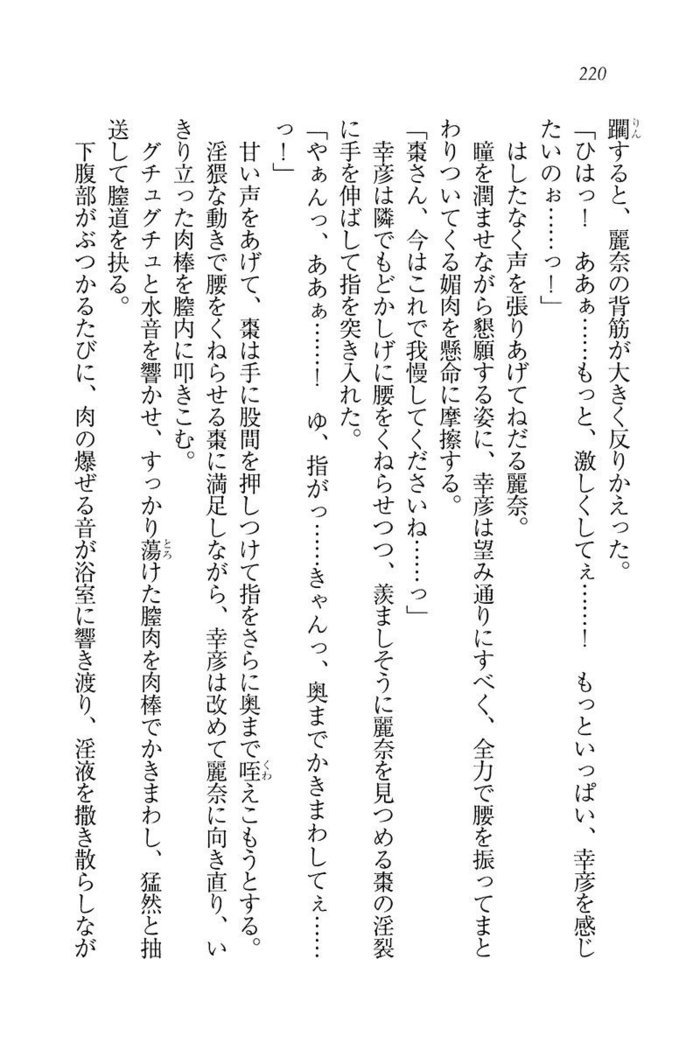 220
躙すると、麗奈の背筋が大きく反りかえった。
「ひはっ！　ああぁ……もっと、激しくしてぇ……！　もっといっぱい、幸彦を感じ
たいのぉ……っ！」
はしたなく声を張りあげてねだる麗奈。
瞳を潤ませながら懇願する姿に、幸彦は望み通りにすべく、全力で腰を振ってまと
わりついてくる媚肉を懸命に摩擦する。
「棗さん、今はこれで我慢してくださいね……っ」
幸彦は隣でもどかしげに腰をくねらせつつ、羨ましそうに麗奈を見つめる棗の淫裂
に手を伸ばして指を突き入れた。
「やぁんっ、ああぁ……！　ゆ、指がっ……きゃんっ、奥までかきまわしてぇ……
っ！」
甘い声をあげて、棗は手に股間を押しつけて指をさらに奥まで咥えこもうとする。
淫猥な動きで腰をくねらせる棗に満足しながら、幸彦は改めて麗奈に向き直り、い
きり立った肉棒を膣内に叩きこむ。
グチュグチュと水音を響かせ、すっかり蕩けた膣肉を肉棒でかきまわし、猛然と抽
送して膣道を抉る。
下腹部がぶつかるたびに、肉の爆ぜる音が浴室に響き渡り、淫液を撒き散らしなが